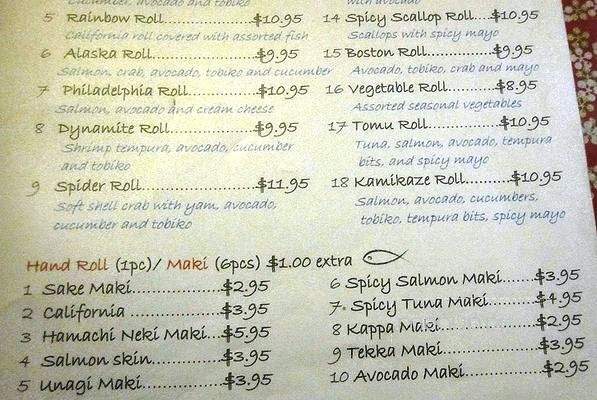 Cucumber, avocado and tobiko
5 Rainbow Roll..............$10.95
California roll covered with assorted fish
6 Alaska Roll................$9.95
Salmon, crab, avocado, tobiko and cucumber
7 Philadelphia Roll..........$10.95
Salmon, avocado and cream cheese
8 Dynamite Roll.............$9.95
Shrimp tempura, avocado, cucumber
and tobiko
9 Spider Roll.................$11.95
Soft shell crab with yam, avocado,
cucumber and tobiko
with avocado
14 Spicy Scallop Roll....$10.95
Scallops with spicy mayo
15 Boston Roll..............$9.95
Avocado, tobiko, crab and mayo
16 Vegetable Roll.........$8.95
Assorted seasonal vegetables
17 Tomu Roll............$10.95
Tuna, salmon, avocado, tempura
bits, and spicy mayo
18 Kamikaze Roll.........$10.95
Salmon, avocado, cucumbers,
tobiko, tempura bits, spicy mayo
Hand Roll (1pc)/ Maki (6pcs) $1.00 extra
1 Sake Maki..............$2.95
2 California ..............$3.95
3 Hamachi Neki Maki...$5.95
4 Salmon skin............$3.95
5 Unagi Maki.............$3.95
6 Spicy Salmon Maki.....$3.95
7 Spicy Tuna Maki.......$4.95
8 Kappa Maki..............$2.95
9 Tekka Maki..............$3.95
10 Avocado Maki..........$2.95